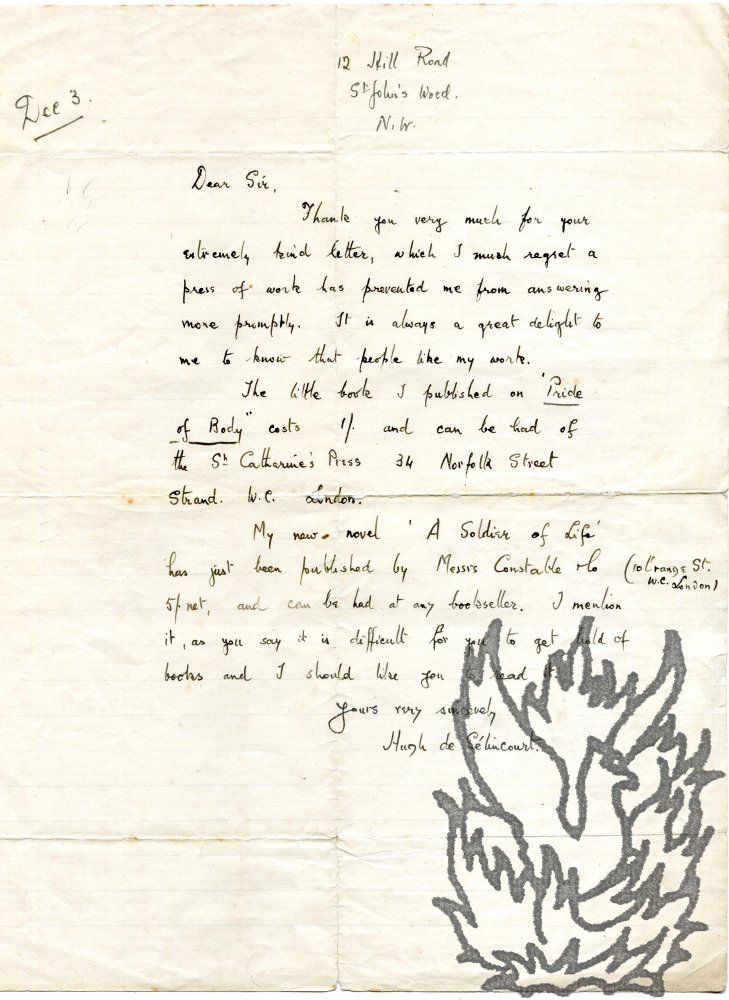 12 Hill Road
St John's Wood.
N.W.
Dec 3.
Dear Sir,
Thank you very much for your
extremely kind letter, which I much regret a
press of work has prevented me from answering
more promptly. It is always a great delight to
me to know that people like my work.
The little book I published on "Pride
of Body" costs 1/. and can be had of
the St Catharine's Press 34 Norfolk Street
Strand. W.C. London.
My new novel 'A Soldier of Life'
has just been published by Messrs Constable & Co (10 Orange St.
W.C. London)
5/. net, and can be had at any bookseller. I mention
it, as you say it is difficult for you to get hold of
books and I should like you to read it.
Yours very sincerely
Hugh de Sélincourt.